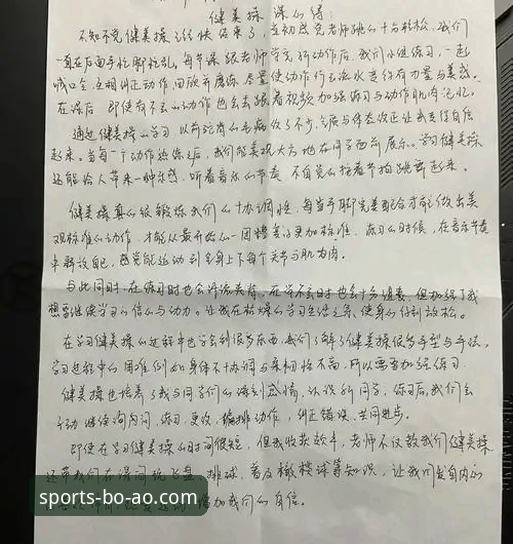 健美操课心得:
不知不觉健美操已经快结束了,老师跳的十分轻松,我们
一直在后面手忙脚乱,每节课跟老师学完新动作后,我们小组练习,一起
喊口令,互相纠正动作,尽量使动作行云流水更给有力量与美感。
在课后,即使有不会的动作也会去跟着视频加强练习与动作肌肉记忆。
通过健美操的学习,以前驼背的毛病改了不少,气质与体态改正让我变得自信
起来。当每一个动作熟练之后,我们能美观大方地在同学面前展示。学习健美操
还能给人带来一种乐感,听着音乐的节奏,不自觉的拍着节拍跳舞起来。
健美操真的很锻炼我们的协调性,每当手脚完美配合才能做出美
观标准的动作,才能从最开始的一团糟变得更加标准,练习的时候,在音乐节奏
中释放自己,感觉能运动到全身上下每个关节与肌肉。
与此同时,在练习时也会,在学不会时也会十分沮丧,但加强了我
想要继续学习的信心与动力。让我在枯燥的学习生活之余,使身心得到放松。
在学习健美操的过程中也学会到很多东西,我们了解了健美操很多手型与手法,
学习过程中的困难例如身体不协调与柔韧性不高,所以需要加强练习。
健美操也培养了我与同学们的深刻感情,认识新同学,练习后我们会
主动继续询问,练习,更改,编排动作,纠正错误,共同进步。
即使在学习健美操的时间很短,但我收获颇丰,老师不仅教我们健美操
还带我们在课间玩飞盘,排球,普及橄榄球等知识,让我们发自内心
增加我们的自信。
sports-bo-ao.com